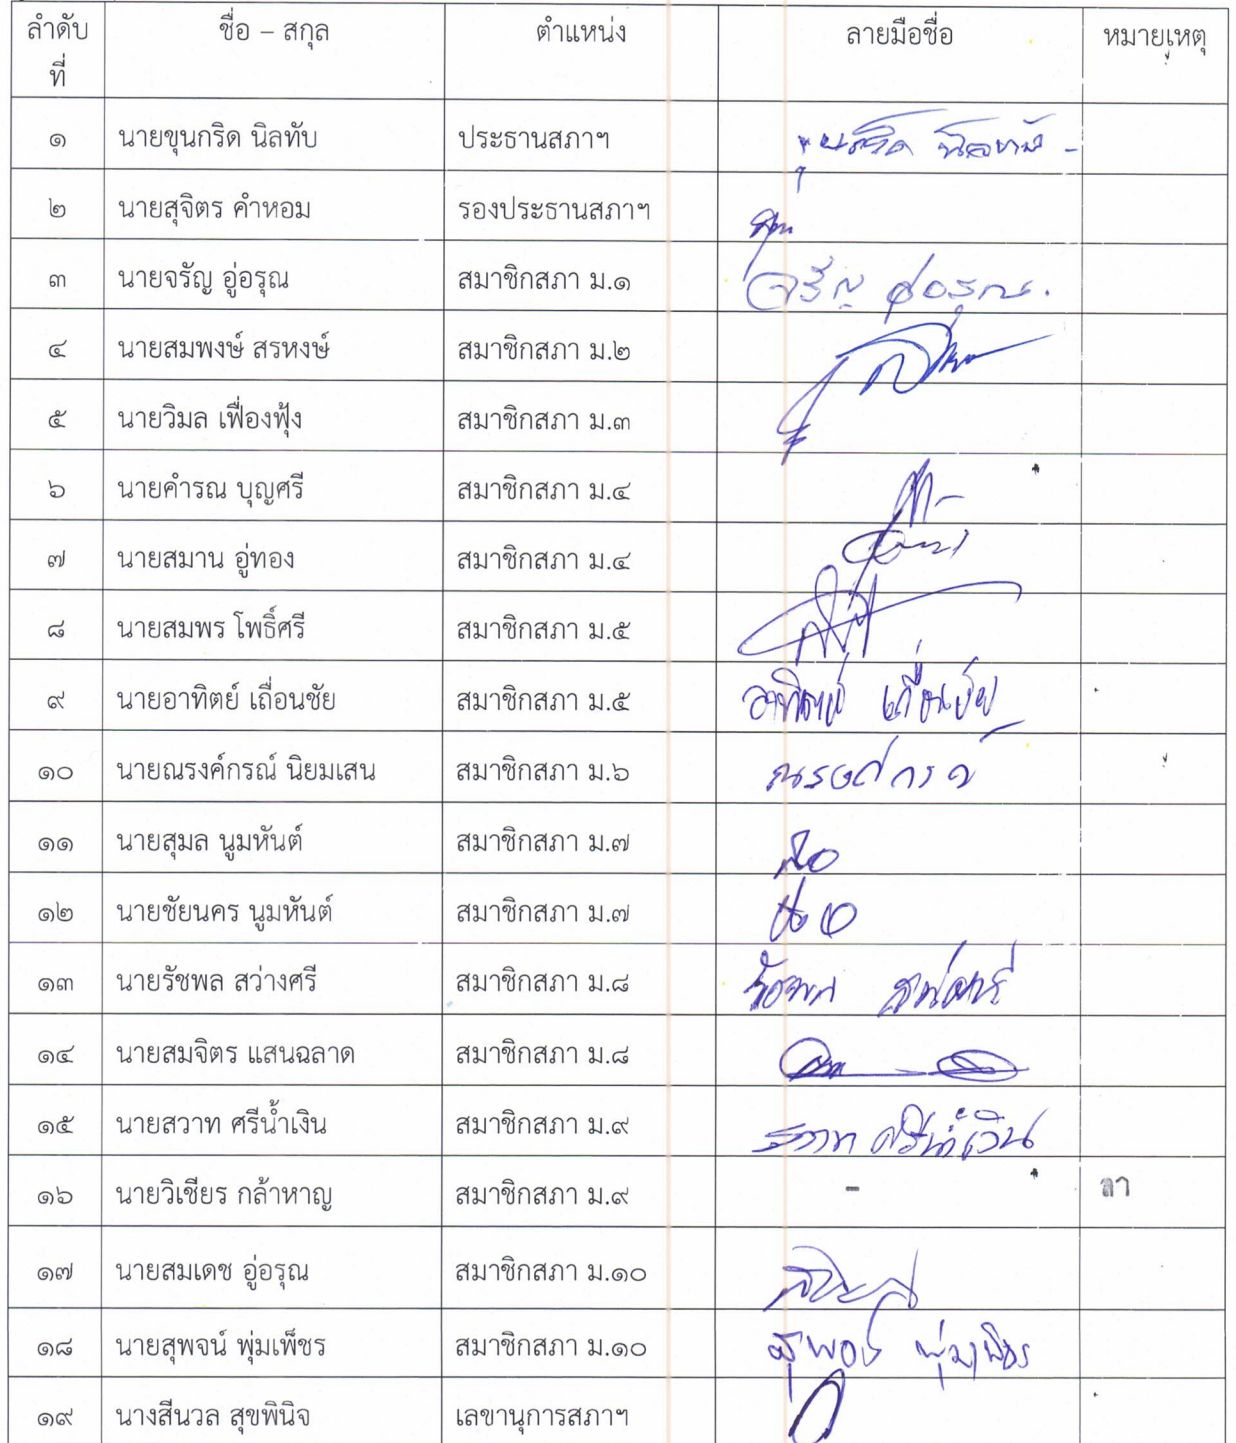 ลำดับที่ ชื่อ – สกุล ตำแหน่ง ลายมือชื่อ หมายเหตุ
๑ นายขุนกริด นิลทับ ประธานสภาฯ ขุนกริด นิลทับ
๒ นายสุจิตร คำหอม รองประธานสภาฯ
๓ นายจรัญ อู่อรุณ สมาชิกสภา ม.๑ จรัญ อู่อรุณ
๔ นายสมพงษ์ สรหงษ์ สมาชิกสภา ม.๒
๕ นายวิมล เฟื่องฟุ้ง สมาชิกสภา ม.๓
๖ นายคำรณ บุญศรี สมาชิกสภา ม.๔
๗ นายสมาน อู่ทอง สมาชิกสภา ม.๔
๘ นายสมพร โพธิ์ศรี สมาชิกสภา ม.๕
๙ นายอาทิตย์ เถื่อนชัย สมาชิกสภา ม.๕ อาทิตย์ เถื่อนชัย
๑๐ นายณรงค์กรณ์ นิยมเสน สมาชิกสภา ม.๖
๑๑ นายสุมล นูมหันต์ สมาชิกสภา ม.๗
๑๒ นายชัยนคร นูมหันต์ สมาชิกสภา ม.๗
๑๓ นายรัชพล สว่างศรี สมาชิกสภา ม.๘ รัชพล สว่างศรี
๑๔ นายสมจิตร แสนฉลาด สมาชิกสภา ม.๘
๑๕ นายสวาท ศรีน้ำเงิน สมาชิกสภา ม.๙ สวาท ศรีน้ำเงิน
๑๖ นายวิเชียร กล้าหาญ สมาชิกสภา ม.๙ - ลา
๑๗ นายสมเดช อู่อรุณ สมาชิกสภา ม.๑๐
๑๘ นายสุพจน์ พุ่มเพ็ชร สมาชิกสภา ม.๑๐ สุพจน์ พุ่มเพ็ชร
๑๙ นางสีนวล สุขพินิจ เลขานุการสภาฯ